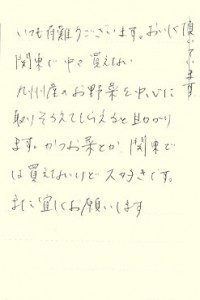 いつも有難うございます。おいしく頂いています
関東で中々買えない
九州産のお野菜を中心に
取りそろえてもらえると助かり
ます。かつお菜とか、関東で
は買えないけど大好きです。
また宜しくお願いします